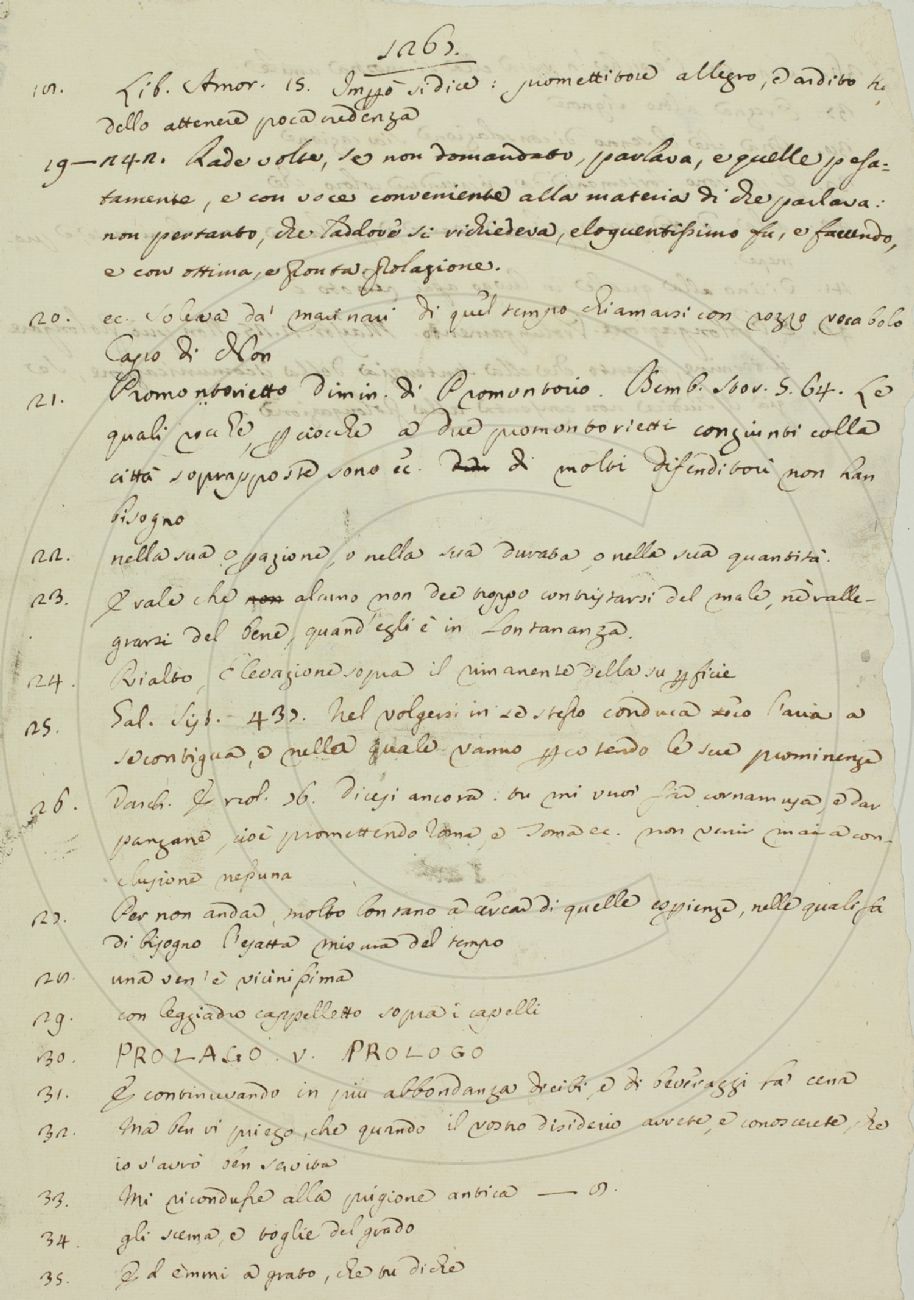 1267.
18. Lib. Amor. 15. Impò si dice: promettitore allegro, è ardito
dello attenere poca credenza
19 — 242. Rade volte, se non domandato, parlava, e quelle pesa-
tamente, e con voce conveniente alla materia di che parlava:
non pertanto, che laddove si richiedeva, eloquentissimo fu, e facundo,
e con ottima, e pronta prolazione.
20. ec. soleva da' marinari di quel tempo chiamarsi con rozzo vocabolo
Capo di Non
21. Promontorietto Dimin. di Promontorio. Bemb. Stor. 5. 64. Le
quali rocche, pciocche a due promontorietti congiunti colla
città soprapposte sono ec. di molti difenditori non han
bisogno
22. nella sua opazione, o nella sua durata, o nella sua quantità.
23. E vale che non alcuno non dee troppo contristarsi del male, nè ralle-
grarsi del bene, quand'egli è in Lontananza.
24. Rialto, Elevazione sopra il rimanente della supficie
25. Gal. Sist. - 437. Nel volgersi in se stesso conduca seco l'aria a
se contigua, e nella quale vanno pcotendo le sue prominenze
26. Varch. Ercol. 76. Dicesi ancora: tu mi vuoi far cornamusa, e dar
panzane, cioè promettendo Roma, e Toma ec. non venir mai a con-
clusione nessuna
27. Per non andar molto lontano a cercar di quelle espienze, nelle quali fa
di bisogno l'esatta misura del tempo
28. una ven'è vicinissima
29. con leggiadro cappelletto sopra i capelli
30. PROLAGO. V. PROLOGO
31. E continuvando in più abbondanza di cibi, e di beveraggi la cena
32. Ma ben vi priego, che quando il vostro disiderio avrete, e conoscerete, che
io v'avrò ben servita
33. Mi ricondusse alla prigione antica — 8.
34. gli scema, e toglie del grado
35. Ed emmi a grato, che tu diche